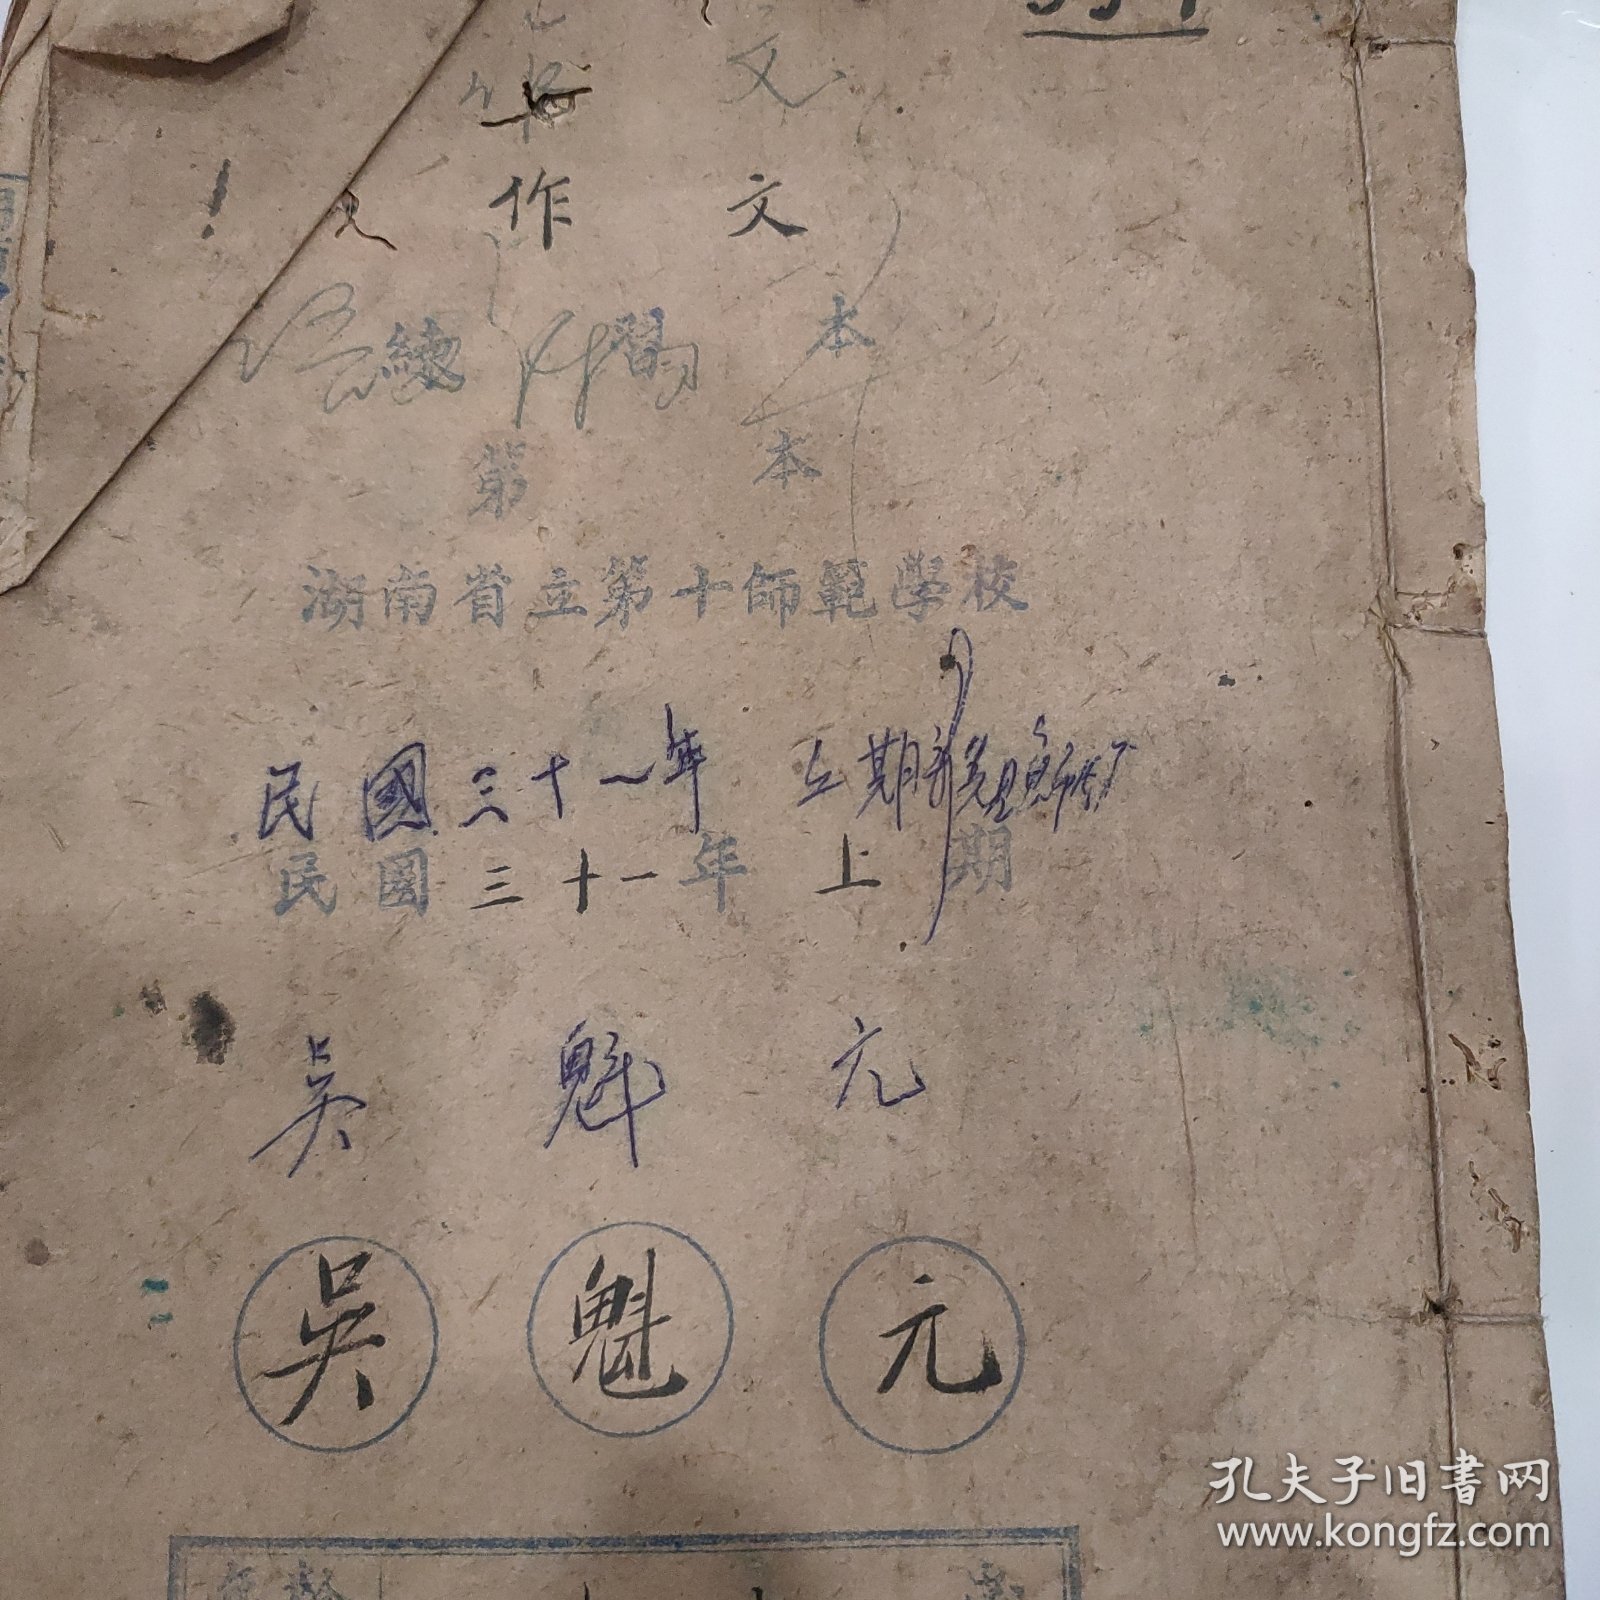 文
作 文
練習本
第 本
湖南省立第十師範學校
民國三十一年 上期
民國三十一年 上期
吳 魁 元
吳 魁 元
孔夫子旧书网
www.kongfz.com